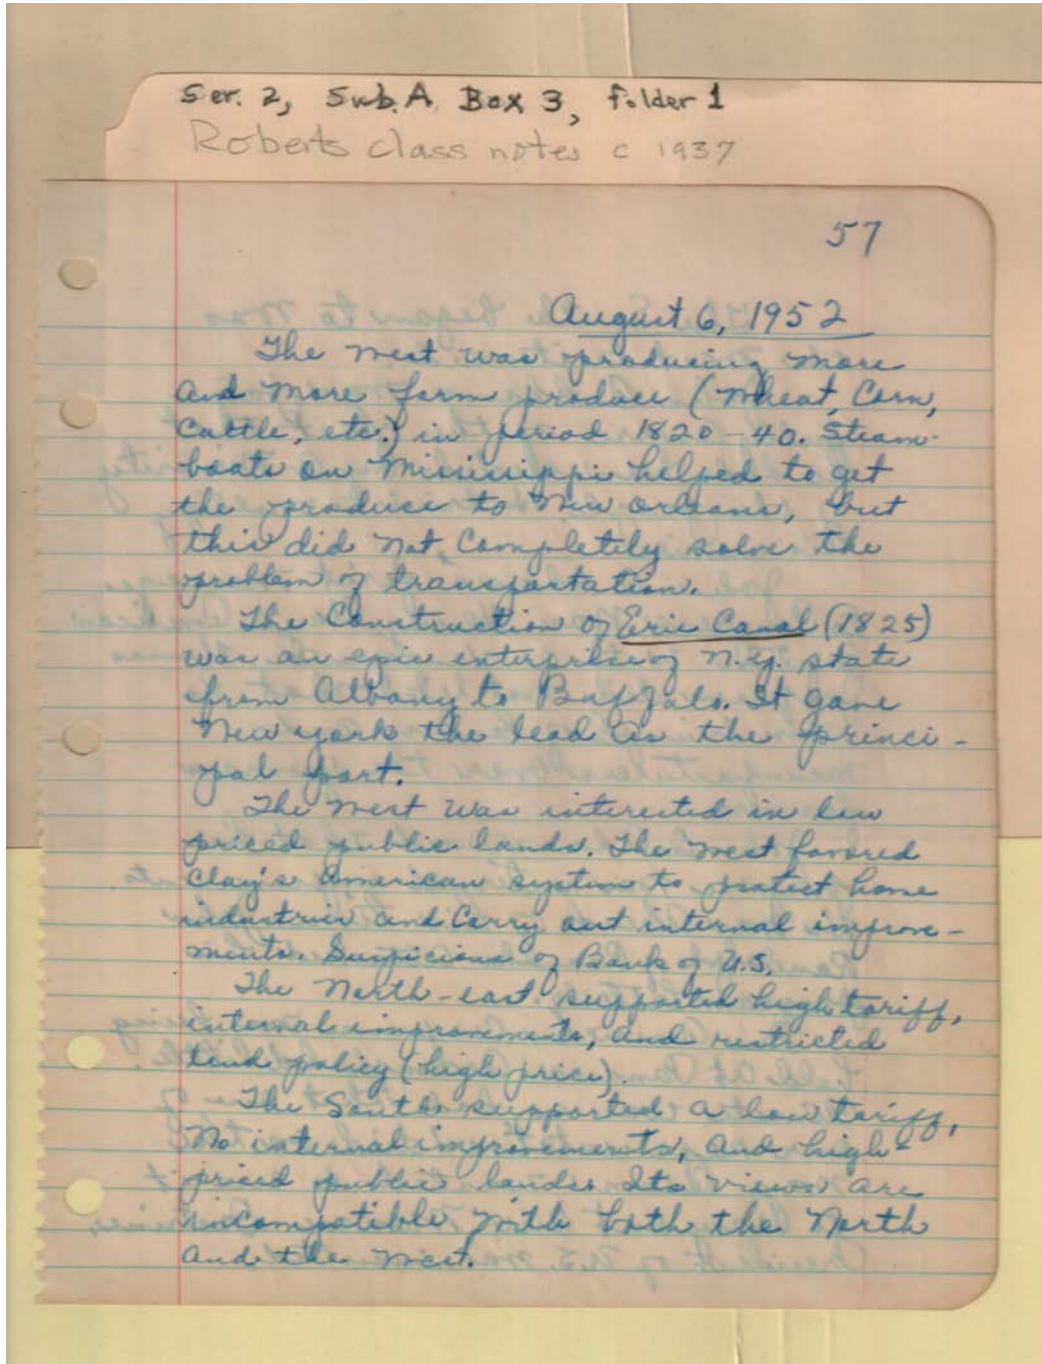 Ser. 2, Sub. A, Box 3, folder 1
Roberts class notes c 1937
57
August 6, 1952
The West was producing more
and more farm produce (Wheat, Corn,
Cattle, etc.) in period 1820-40. Steam-
boats on Mississippi helped to get
the produce to New Orleans, but
this did not completely solve the
problem of transportation.
The Construction of Erie Canal (1825)
was an epic enterprise of N.Y. state
from Albany to Buffalo. It gave
New York the lead as the princi-
pal port.
The West was interested in low
priced public lands. The West favored
Clay's American system to protect home
industries and Carry out internal improve-
ments. Suspicious of Bank of U.S.
The North-east supported high tariff,
internal improvements, and restricted
land policy (high price).
The South supported a low tariff,
No internal improvements, and high
priced public lands. Its views are
incompatible with both the North
and the West.